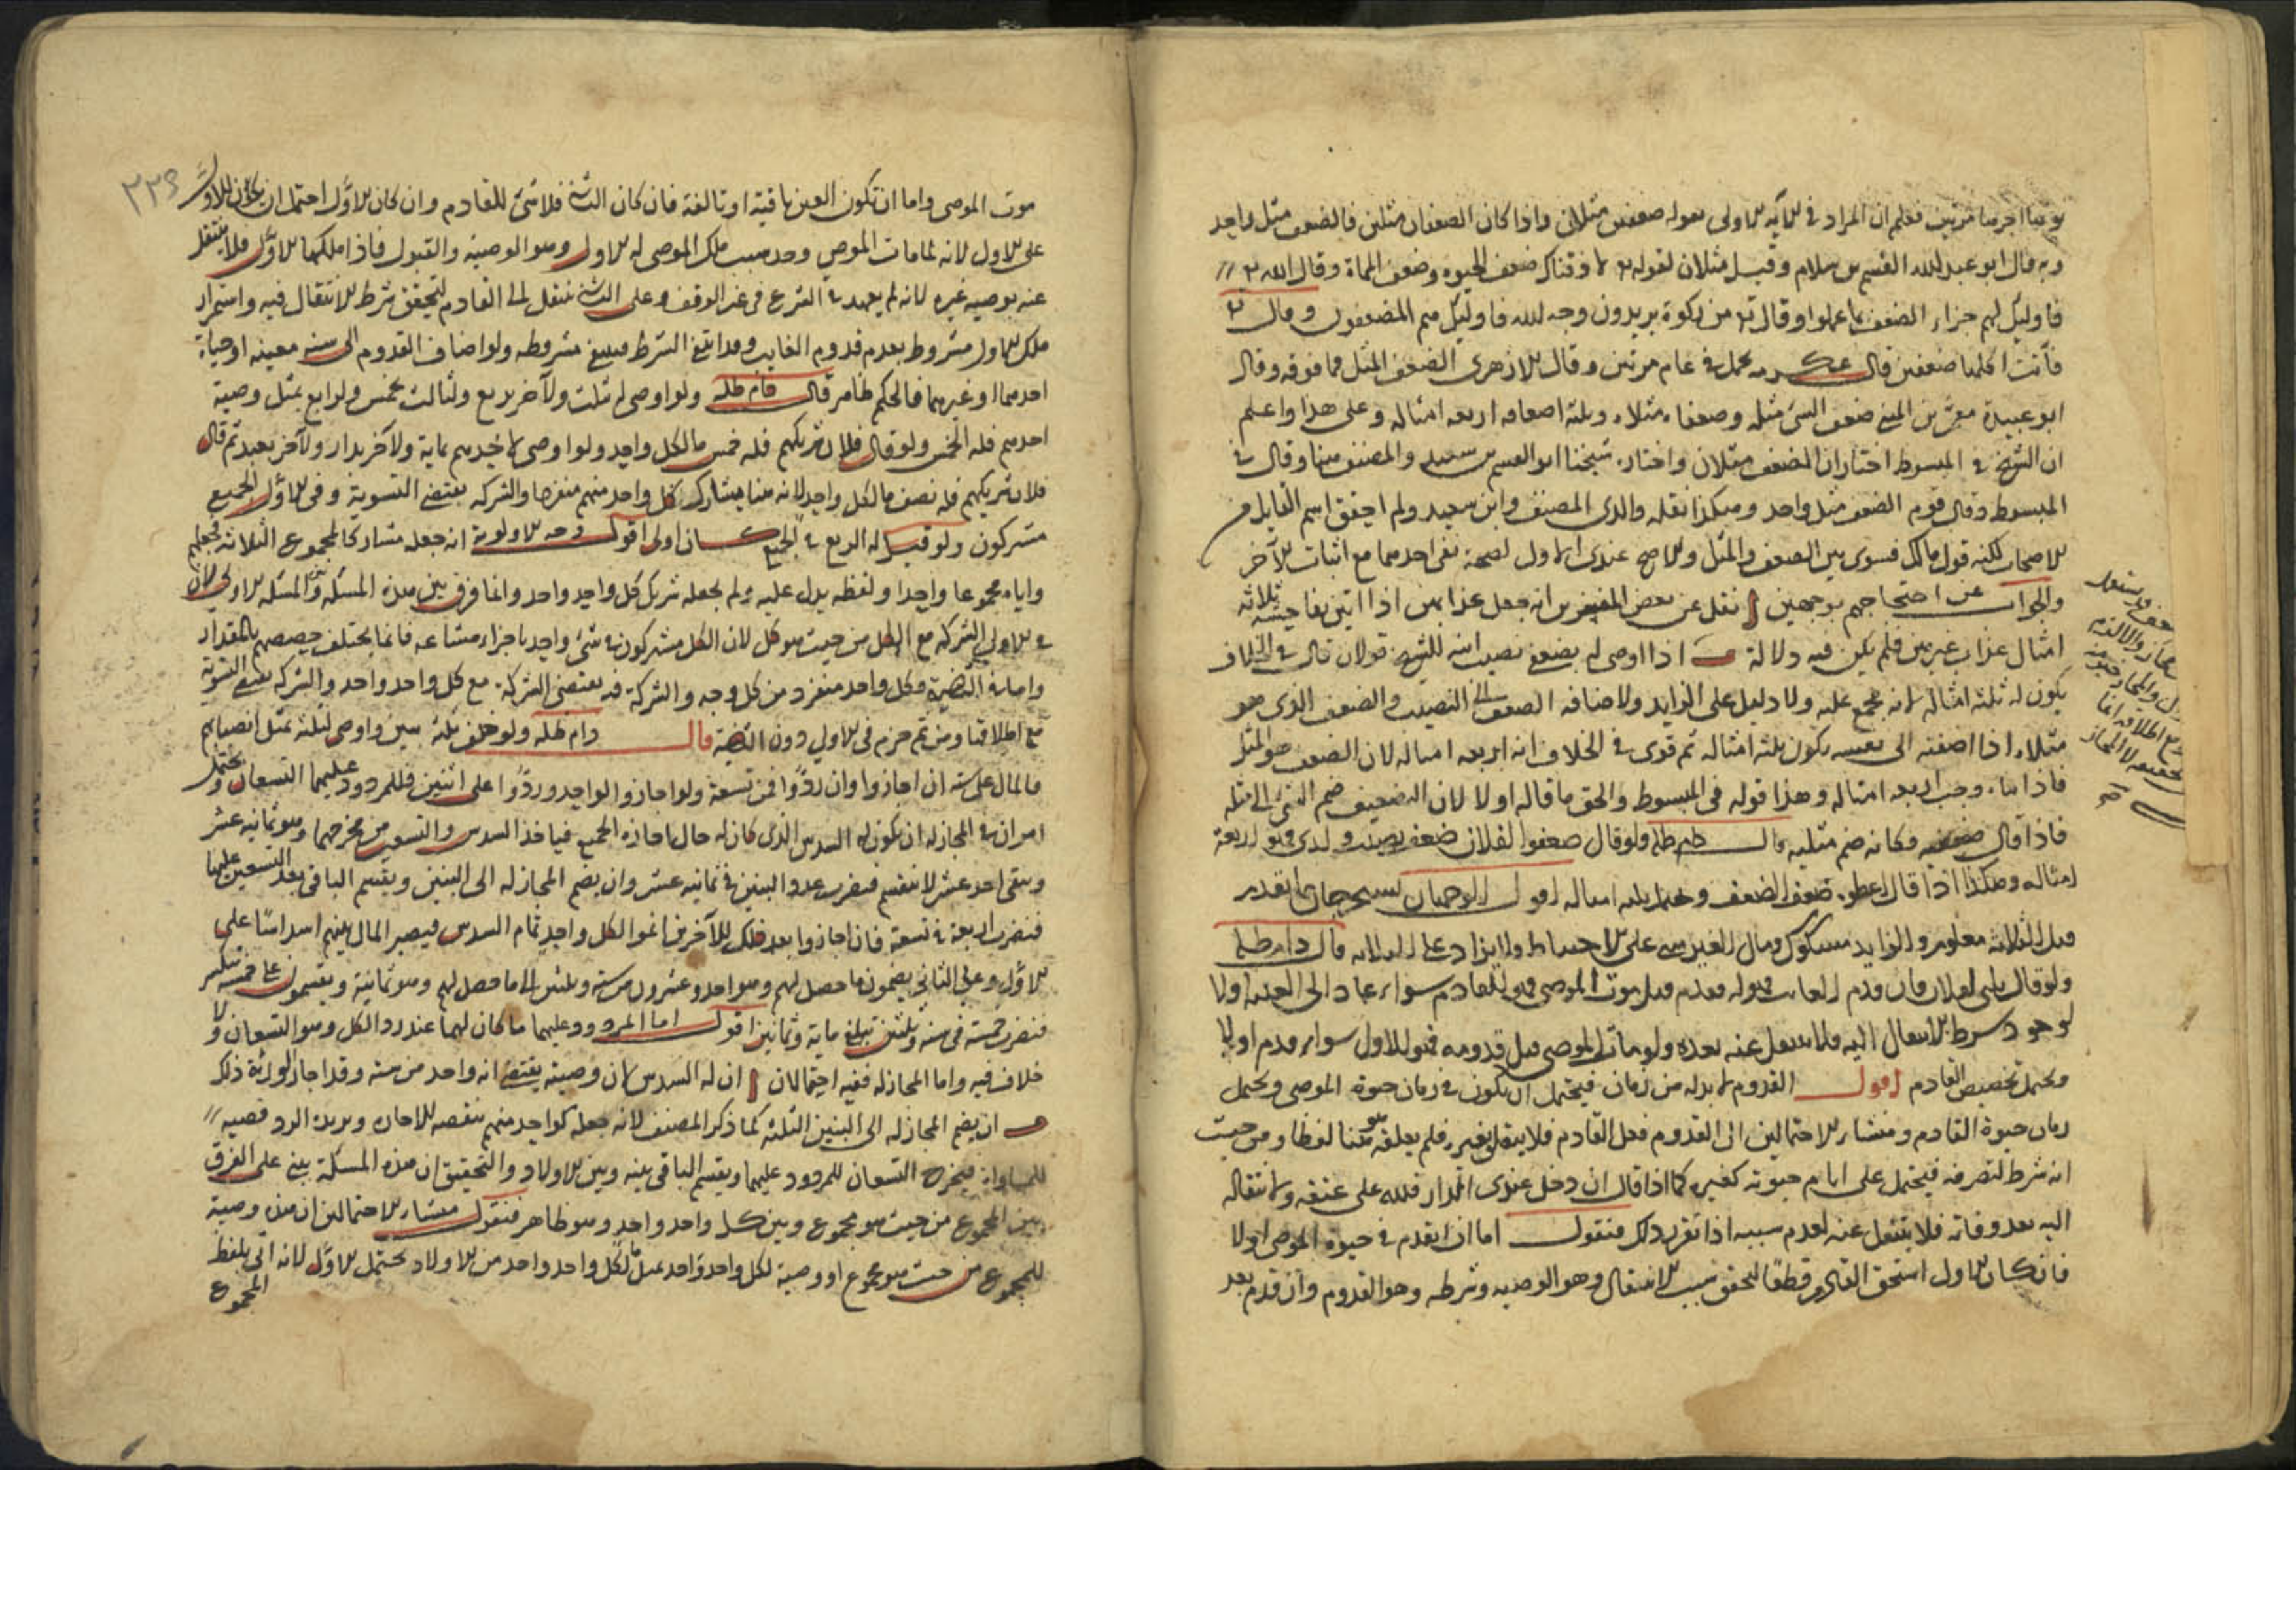 نوتها اجرها مرتين فعلم ان المراد في الآية الاولى بقوله ضعفين مثلان واذا كان الضعفان مثلين فالضعف مثل واحد
وبه قال ابو عبد الله القسم بن سلام وقيل مثلان لقوله تع لاذقناك ضعف الحيوة وضعف المماة وقال الله تع
فاوليك لهم جزاء الضعف بما عملوا وقال تع من زكوة يريدون وجه الله فاوليك هم المضعفون وقال تع
فآتت اكلها ضعفين قال عكرمه تحمل في عام مرتين وقال الازهرى الضعف المثل فما فوقه وقال
ابو عبيدة معمر بن المثنى ضعف الشئ مثله وضعفاه مثلاه وثلثة اضعافه اربعه امثاله وعلى هذا واعلم
ان الشيخ في المبسوط اختار ان الضعف مثلان واختاره شيخنا ابو القسم بن سعيد والمصنف هنا وقال في
المبسوط وقال قوم الضعف مثل واحد وهكذا نقله والدى المصنف وابن سعيد ولم احقق اسم القايل من
الاصحاب لكنه قول مالك فسوى بين الضعف والمثل والاصح عندى الاول لصحة نفى احدهما مع اثبات الآخر
والجواب عن احتجاجهم بوجهين ا نقل عن بعض المفسرين انه جعل عذابهن اذا اتين بفاحشة ثلاثة
امثال عذاب غيرهن فلم يكن فيه دلالة ب اذا اوصى له بضعف نصيب ابنه للشيخ قولان قال في الخلاف
يكون له ثلثة امثاله لانه مجمع عليه ولا دليل على الزايد ولاضافه الضعف الى النصيب والضعف الذى هو
مثلاه اذا اضفته الى نفسه يكون ثلثة امثاله ثم قوى في الخلاف انه اربعه امثاله لان الضعف هو المثل
فاذا ثناه وجب اربعه امثاله وهذا قوله في المبسوط والحق ما قاله اولا لان التضعيف ضم الشئ الى مثله
فاذا قال ضعفيه فكانه ضم مثليه قال طيم طله ولو قال ضعفوا لفلان ضعف نصيب ولدى فهو اربعة
امثاله وهكذا اذا قال اعطوه ضعف الضعف ويحتمل ثلثه امثاله اقول الوجهان تسبيحهان بالتقدير
قبل الثلاثة معلوم والزايد مشكوك ومال الغير مبنى على الاحتياط ولا يزاد على الدلالة قال دام طله
ولو قال ثلثى لفلان فان قدم الغايب فهو له فقدم قبل موت الموصى فهو للقادم سواء عاد الى الغيبة او لا
لوجود شرط الانتقال اليه فلا ينتقل عنه بعده ولو مات الموصى قبل قدومه فهو للاول سواء قدم او لا
ويحتمل تخصيص القادم اقول القدوم لا بد له من زمان فيحتمل ان يكون في زمان حيوة الموصى ويحتمل
زمان حيوة القادم ومنشاء الاحتمالين الى القدوم فعل القادم فلا يتعلق بغيره فلم يعلقه هنا لفظا ومن حيث
انه شرط لتصرفه فيحتمل على ايام حيوته كغيره كما اذا قال ان دخل عبدى الدار فلله على عتقه ولانتقاله
اليه بعد وفاته فلا ينتقل عنه لعدم سببه اذا تقرر ذلك فنقول اما ان يقدم في حيوة الموصى او لا
فان كان الاول استحق القادم قطعا لتحقق سبب الانتقال وهو الوصيه وشرطه وهو القدوم وان قدم بعد
موت الموصى واما ان تكون العين باقية او تالفة فان كان الثانى فلا شئ للقادم وان كان الاول احتمل ان تكون للاول
على الاول لانه لما مات الموصى وجد سبب ملك الموصى له الاول وهو الوصيه والقبول فاذا ملكها الاول فلا ينتقل
عنه بوصيه غيره لانه لم يعهد في الشرع في غير الوقف وعلى الثانى ينتقل الى القادم لتحقق شرط الانتقال فيه واستمرار
ملك الاول مشروط بعدم قدوم الغايب وقد انتفى الشرط فينتفى مشروطه ولو اضاف القدوم الى سنه معينه او حياة
احدهما او غيرهما فالحكم ظاهر قال دام طله ولو اوصى له بثلث ولآخر بربع ولثالث بخمس ولرابع بمثل وصية
احدهم فله الخمس ولو قال فلان شريكهم فله خمس ما لكل واحد ولو اوصى لاحدهم بماية ولآخر بدار ولآخر بعبد ثم قال
فلان شريكهم فله نصف ما لكل واحد لانه هنا يشارك كل واحد منهم منفردا والشركه يقتضى التسوية وفى الاول الجميع
مشتركون ولو قيل له الربع في الجميع كان اولى اقول وجه الاولوية انه جعله مشاركا لمجموع الثلاثة فجعلهم
واياه مجموعا واحدا ولفظه يدل عليه ولم يجعله شريك كل واحد واحد وانما فرق بين هذه المسئله وبين المسئله الاولى لان
في الاولى الشركه مع الكل من حيث هو كل لان الكل مشتركون في شئ واحد باجزاء مشاعه فانما يختلف حصصهم بالمقدار
واما في الثانية فكل واحد منفرد من كل وجه والشركة فيه يقتضى الشركة مع كل واحد واحد والشركه يقتضى التسوية
مع اطلاقها ومن ثم جزم فى الاولى دون الثانية قال دام طله ولو خلف ثلثة بنين واوصى لثلثة بمثل انصبائهم
فالمال على ستة ان اجازوا وان ردوا فمن تسعة ولو اجازوا لواحد وردوا على اثنين فللمردود عليهما التسعان ويحتمل
امران في المجاز له ان يكون له السدس الذى كان له حال ما اجازه الجميع فياخذ السدس والتسعين من مخرجهما وهو ثمانيه عشر
ويبقى احد عشر لا ينقسم فيضرب عدد البنين في ثمانيه عشر وان يضم المجاز له الى البنين ويقسم الباقى بعد التسعين عليها
فنضرب اربعة في تسعة فان اجازوا بعد ذلك للآخرين اتموا لكل واحد تمام السدس فيصير المال بينهم اسداسا على
الاول وعلى الثانى يضمون ما حصل لهم وهو احد وعشرون من ستة وثلثين الى ما حصل لهم وهو ثمانية ويقسمون على خمسة تنكسر
فنضرب خمسة فى ستة وثلثين تبلغ ماية وثمانين اقول اما المردود عليهما ما كان لهما عند رد الكل وهو التسعان ولا
خلاف فيه واما المجاز له ففيه احتمالان ا ان له السدس لان وصيته يقتضى انه واحد من ستة وقد اجاز الورثة ذلك
ب ان يضم المجاز له الى البنين الثلثة كما ذكر المصنف لانه جعله كواحد منهم
للمساواة فيخرج التسعان للمردود عليهما ويقسم الباقى بينه وبين الاولاد والتحقيق ان هذه المسئلة يبنى على الفرق
بين المجموع من حيث هو مجموع وبين كل واحد واحد وهو ظاهر فنقول منشاء الاحتمالين ان هذه وصية
للمجموع من حيث هو مجموع او وصية لكل واحد واحد بمثل ما لكل واحد واحد من الاولاد يحتمل الاول لانه اتى بلفظ
المجموع